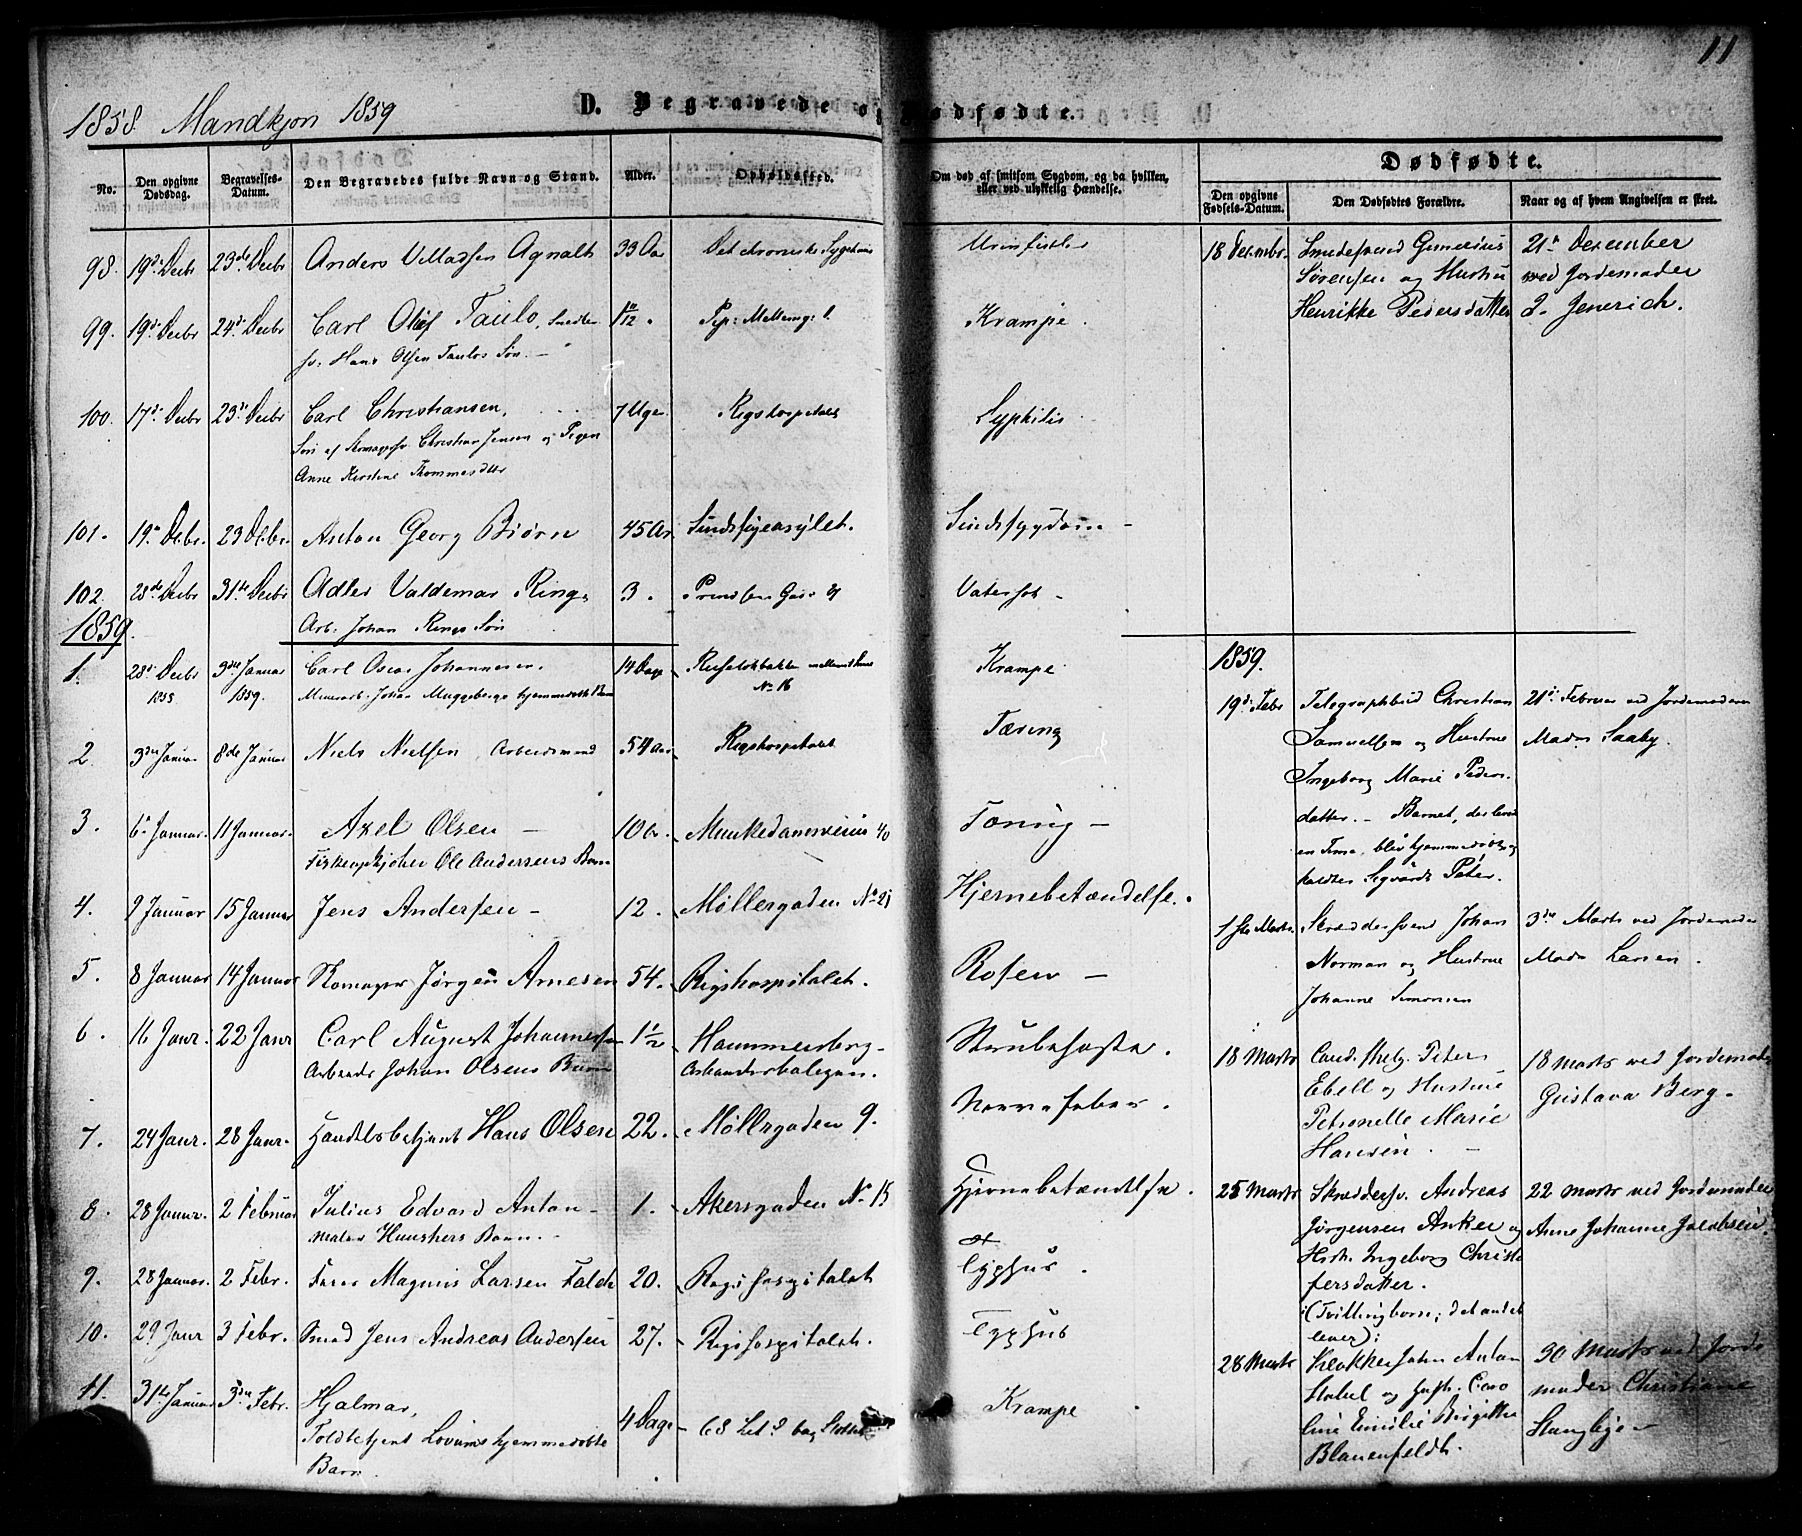 11
1858. Mandkjøn 1859
D. Begravede og Dødfødte.
No. Den opgivne Dødsdag. Begravelses-Datum. Den Begravedes fulde Navn og Stand. Alder. Opholdssted. Om død af smitsom Sygdom, og da hvilken, eller ved ulykkelig Hændelse.
Dødfødte.
Den opgivne Fødsels-Datum. Den Dødfødtes Forældre. Naar og af hvem Angivelsen er skeet.
98. 19d. Decbr 23de Decbr Anders Agnalt 33 Aar Det chroniske Sygehuus Urinfistler
99. 19d. Decbr 24d. Decbr Carl Olaf Taulo, Snedker
sv. Hans Olsen Taulos Søn. — Krampe.
100. 17d. Decbr 23d. Decbr Carl Christiansen, 7 Uger Rigshospitalet Syphilis
Søn af Skomagersv. Christian Jensen og Pigen
Anne Kirstine Thommesdtr
101. 19. Decbr. 23 Decbr. Anton Georg Biørn 45 Aar Sindssygeasylet. Sindssygdom —
102. 28de Decbr 31te Decbr Adler Valdemar Ring, 3. Prindsens Gade Vatersot —
Arb. Johan Rings Søn
1859.
1. 28d. Decbr 1858 3die Januar 1859. Carl Oscar Johannesen. 14 Dage No 16 Krampe
Johan Muggebergs hjemmedøbte Barn
2. 3die Januar 8de Januar Niels Nielsen, Arbeidsmand 54 Aar Rigshospitalet Tæring
3. 6. Januar. 11 Januar. Axel Olsen — 10 Munkedamsveien 40 Tæring —
Ole Andersens Barn
4. 9 Januar 15 Januar Jens Andersen — 12. Møllergaden No 21 Hjernebetændelse.
5. 8 Januar 14 Januar Skomager Jørgen Arnesen 54. Rigshospitalet. Rosen —
6. 16 Janr. 22 Janr Carl August Johannessen 1½ Hammersborg — Strubehoste.
Johan Olsens Barn
7. 24 Janr. 28 Janr. Handelsbetjent Hans Olsen 22. Møllergaden 9. Nervefeber.
8. 28 Janr. 2 Februar Julius Edvard Anton — 1. Akersgaden No 15 Hjernebetændelse.
Maler Barn. —
9. 28 Januar. 2 Febr. Magnus Larsen Falde 20. Rigshospitalet Typhus.
10. 29 Janr 3 Febr. Smed Jens Andreas Andersen 27. Rigshospitalet. Typhus
11. 31te Januar 3die Febr. Hjalmar, 4 Dage bag Slottet Krampe
Toldbetjent Lovums hjemmedøbte
Barn.
18 December Smedesvend Gunerius 21de December
Sørensen og Hustru ved Jordemoder
Henrikke Pedersdatter J. Jenerich.
1859.
19d. Febr Telegraphbud Christian 21d. Februar ved Jordemoderen
Samuelsen og Hustrue Mad. Saaby.
Ingeborg Marie Peders-
datter. — Barnet, der levede
en Time, blev hjemmedøbt og
kaldtes Sigvardt Peter.
1ste Marts. Skræddersvend Johan 3die Marts ved Jordemoder
Norman og Hustrue Mad. Larsen.
Johanne Simonsen
18 Marts Cand. theol. Peter 18 Marts ved Jordemoder
Ebell og Hustrue Gustava Berg.
Petronelle Marie
Hansen. —
25 Marts Skræddersv. Andreas 22 Marts ved Jordemoder
Jørgensen Anker og Anne Johanne Jacobsen.
Hustr. Ingeborg Christo-
fersdatter.
(Tvillingbørn; det andet
lever);
28 Marts Klokker John Anton 30 Marts ved Jorde-
Stabel og Hustr. Caro- moder Christiane
line Emilie Birgitte Stanglije —
Blauenfeldt.